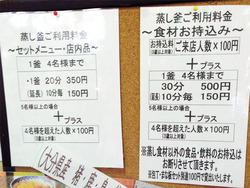 蒸し釜ご利用料金
～セットメニュー・店内品～
1釜 4名様まで
・1釜 20分 350円
(延長) 10分毎 150円
5名様以上の場合
＋プラス
4名様を超えた人数×100円
蒸し釜ご利用料金
～食材お持込み～
お持込料 ご来店人数×100円
＋プラス
1釜 4名様まで
30分 500円
(延長) 10分毎 150円
5名様以上の場合
＋プラス
4名様を超えた人数×100円
※蒸し食材以外の食品・飲料のお持込は
お断りさせて頂きます。
大分県産